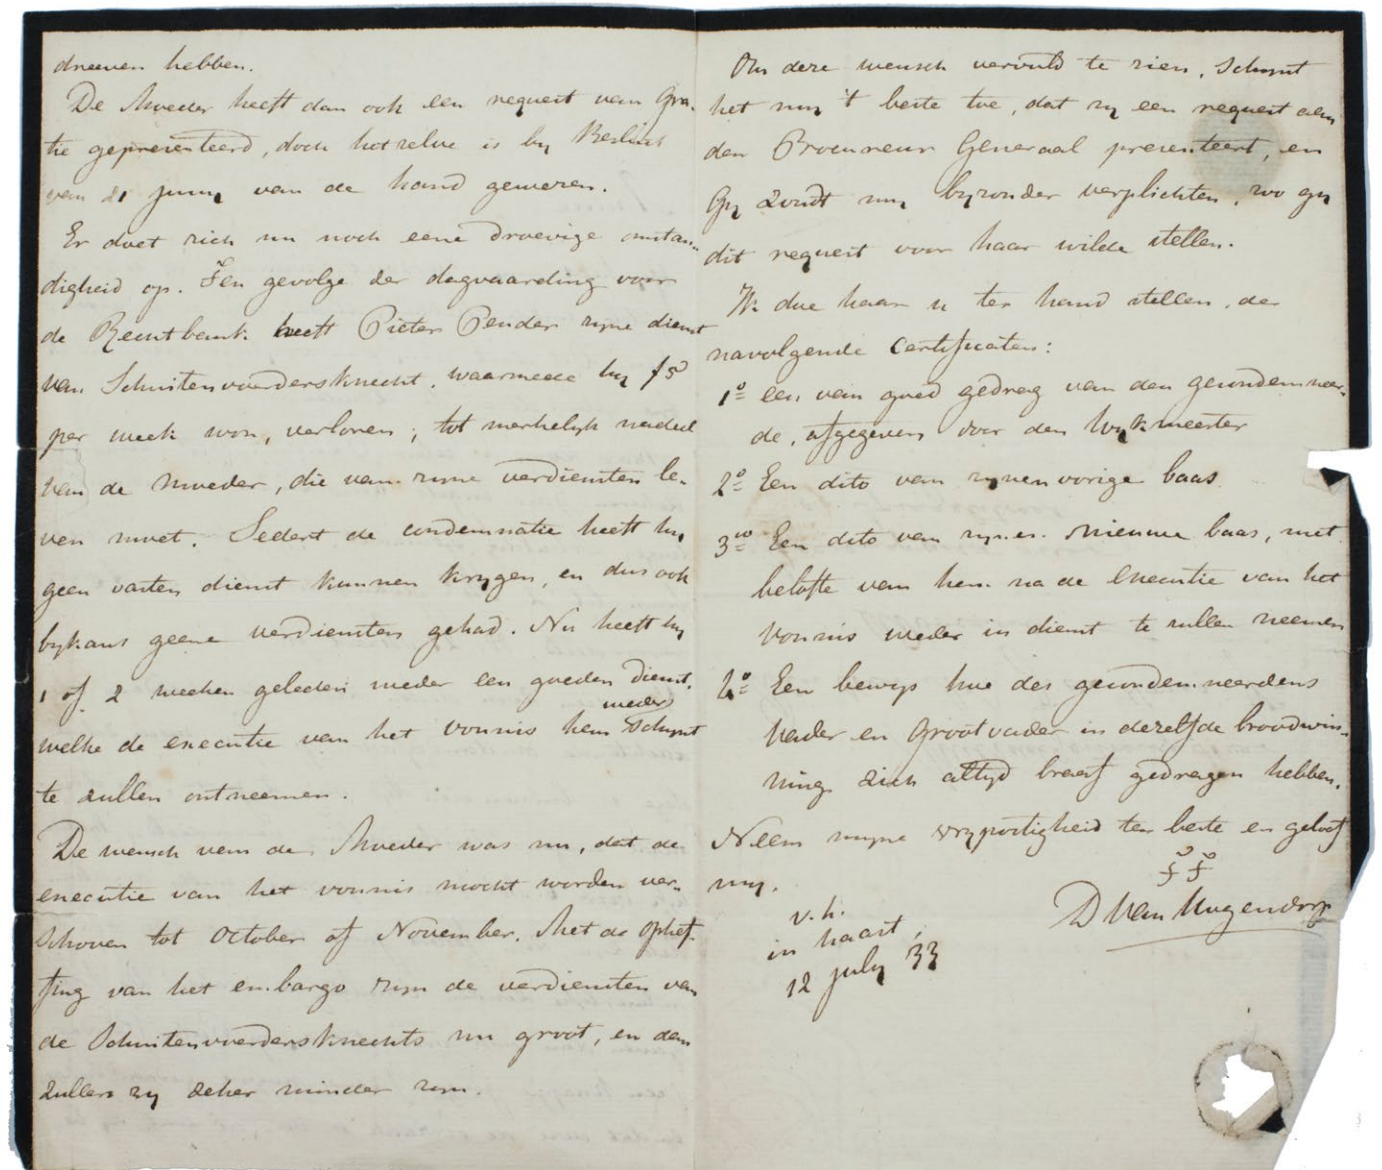 dreeven hebben.
De Moeder heeft dan ook een request van Gra-
tie gepresenteerd, doch hetzelve is by Besluit
van 21 juny van de hand gewezen.
Er doet zich nu noch eene droevige omstan-
digheid op. Ten gevolge der dagvaarding voor
de Regtbank heeft Pieter Pender zyne dienst
van Schuitenvoerdersknecht, waarmede hy f5
per week won, verloren; tot merkelyk nadeel
van de Moeder, die van zyne verdiensten le-
ven moet. Sedert de condemnatie heeft hy
geen vasten dienst kunnen krygen, en dus ook
bykans geene verdiensten gehad. Nu heeft hy
1 of 2 weeken geleden weder een goeden dienst,
welke de executie van het vonnis hem weder schynt
te zullen ontneemen.
De wensch van de Moeder was nu, dat de
executie van het vonnis mocht worden ver-
schoven tot October of November. Met de ophef-
fing van het embargo zyn de verdiensten van
de Schuitenvoerdersknechts nu groot, en dan
zullen zy zeker minder zyn.
Om deze wensch vervuld te zien, schynt
het my 't beste toe, dat zy een request aan
den Procureur Generaal presenteert, en
Gy zoudt my byzonder verplichten, zo gy
dit request voor haar wilde stellen.
Ik doe haar u ter hand stellen, de
navolgende Certificaten:
1° een van goed gedrag van den gecondemneer-
de, afgegeven door den Wykmeester
2° Een dito van zynen vorige baas
3° Een dito van zynen nieuwe baas, met
belofte van hem na de Executie van het
vonnis weder in dienst te zullen neemen
4° Een bewys hoe des gecondemneerdens
Vader en Grootvader in dezelfde broodwin-
ning zich altyd braaf gedragen hebben.
Neem myne vrypostigheid ten beste en geloof
my.
v. h.
in haast,
12 july 33
D Van Hogendorp